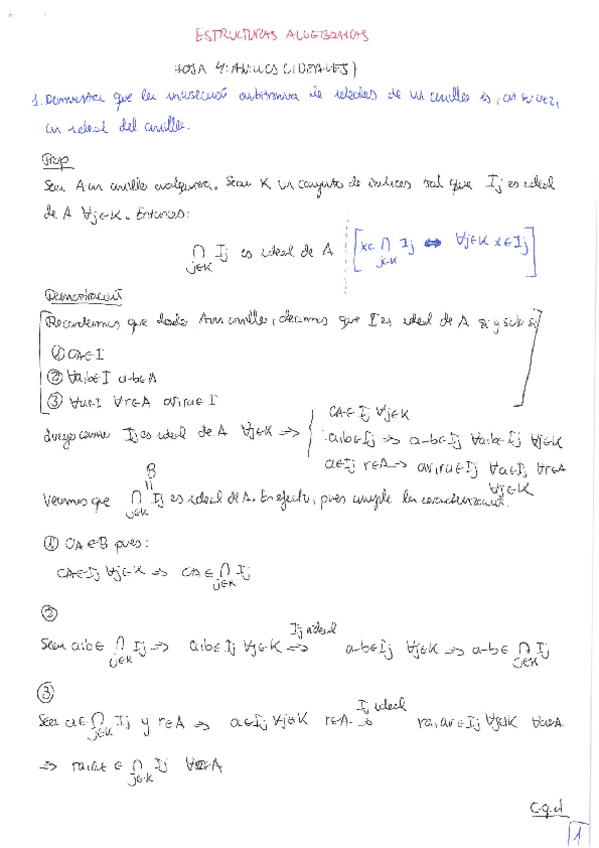 ESTRUCTURAS ALGEBRAICAS
HOJA 4: ANILLOS (IDEALES)
1. Demuestra que la intersección arbitraria de ideales de un anillo es, a su vez,
un ideal del anillo.
Prop
Sea A un anillo cualquiera. Sean K un conjunto de índices tal que Ij es ideal
de A ∀j∈K. Entonces:
⋂ j∈K Ij es ideal de A [x∈ ⋂ j∈K Ij ⇔ ∀j∈K x∈Ij]
Demostración
Recordemos que dado A un anillo, decimos que I es ideal de A si y solo si
① 0A∈I
② ∀a,b∈I a-b∈A
③ ∀a∈I ∀r∈A ar,ra∈I
Luego como Ij es ideal de A ∀j∈K ⇒ { 0A∈Ij ∀j∈K
a,b∈Ij ⇒ a-b∈Ij ∀a,b∈Ij ∀j∈K
a∈Ij r∈A ⇒ ar,ra∈Ij ∀a∈Ij ∀r∈A
∀j∈K
B
||
Veamos que ⋂ j∈K Ij es ideal de A. En efecto, pues cumple la caracterización.
① 0A∈B pues:
0A∈Ij ∀j∈K ⇒ 0A∈ ⋂ j∈K Ij
②
Sean a,b∈ ⋂ j∈K Ij ⇒ a,b∈Ij ∀j∈K ⇒ Ij ideal a-b∈Ij ∀j∈K ⇒ a-b∈ ⋂ j∈K Ij
③
Sea a∈ ⋂ j∈K Ij y r∈A ⇒ a∈Ij ∀j∈K r∈A ⇒ Ij ideal ra,ar∈Ij ∀j∈K ∀r∈A
⇒ ra,ar ∈ ⋂ j∈K Ij ∀r∈A
c.q.d
1